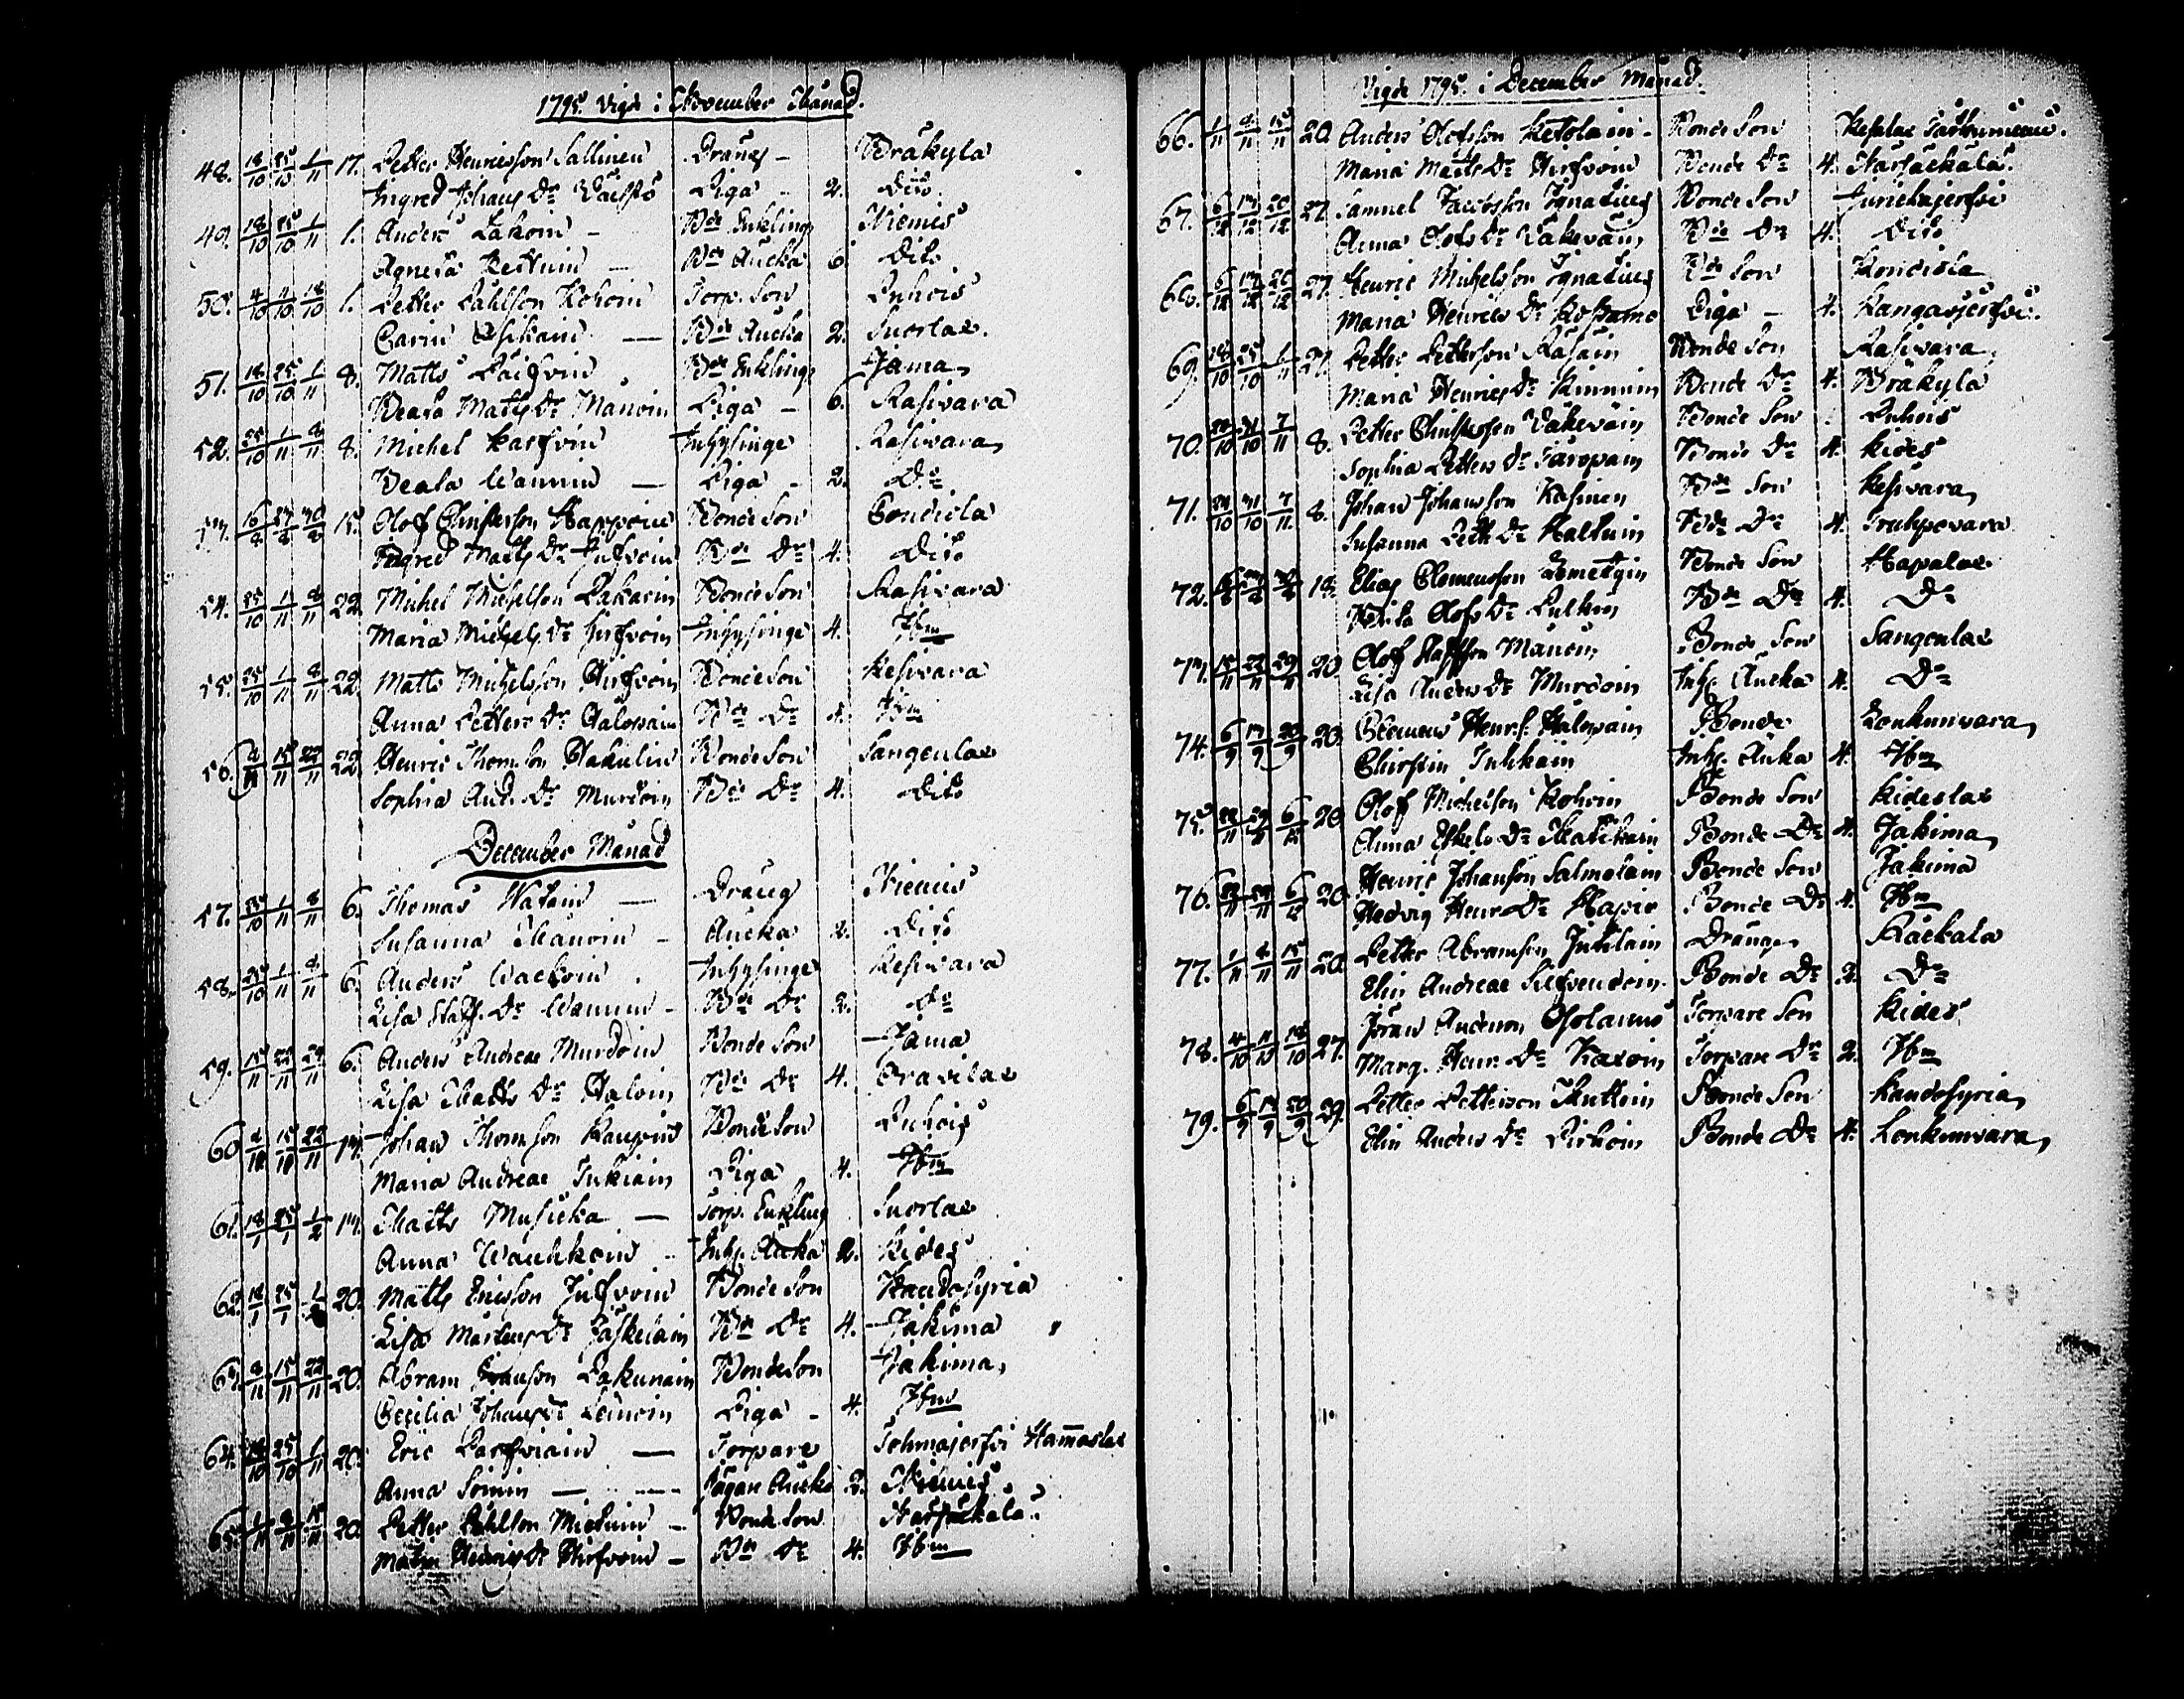 1795. Vigde i November Månad.
48. 18/10 25/10 1/11 17. Petter Henricsson Sallinen Dräng – Bräkylä
Ingred Johans Dr Päiffö Piga – 2. Dito
49. 18/10 25/10 1/11 1. Anders Lakoin – Bde Enkling Niemis
Agneta Kettuin – Bde Äncka 6. Dito
50. 4/10 11/10 18/10 1. Petter Påhlson Kohoin Torp. Son Puhois
Carin – Bde Äncka 2. Suorlax.
51. 18/10 25/10 1/11 8. Matts Päifvin Bde Enkling Jama
Beata Matts Dr Manoin Piga – 6. Rasivara
52. 25/10 1/11 8/11 8. Michel Karfvin Inhysinge Rasivara
Beata Wannin – Piga – 2. Do
53. 15. Olof Christerson Happoin Bonde Son Conciola
Ingred Matts Dr Jufvoin Bde Dr 4. Dito
54. 25/10 1/11 8/11 22. Michel Michelson Pakarin Bonde Son Rasivara
Maria Michels Dr Hirfvoin Inhysinge 4. Ibm
55. 25/10 1/11 8/11 22. Matts Michelsson Hirfvoin Bonde Son Kesivara
Anna Petters Dr Halopain Bde Dr 4. Ibm
56. 15/11 22/11 22. Henric Thomson Hakulin Bonde Son Sangenlax
Sophia And. Dr Murdoin Bde Dr 4. Dito
December Månad
57. 25/10 1/11 8/11 6. Thomas Watain – Dräng Niemis
Susanna Manoin – Äncka 2. Dito
58. 25/10 1/11 8/11 6. Anders Inhysinge Kesivara
Lisa Staff. Dr Wannin – Bde Dr 2. Do
59. 15/11 22/11 29/11 6. Anders Andreae Murdoin Bonde Son Jama
Lisa Matts Dr Haloin Bde Dr 4. Oravilax
60. 15/11 22/11 13. Johan Thomson Kaupin Bonde Son Puhois
Maria Andreae Tukiain Piga 4. Ibm
61. 18/1 25/1 1/2 13. Matts Musicka – Torp. Enkling Suorlax
Anna Wauhkoin – Inhs. Äncka 2. Kides
62. 18/1 25/1 1/2 20. Matts Ericsson Jufvoin Bonde Son Kandosyria
Lisa Mårtens Dr Jäskelain Bde Dr 4. Jakima
63. 15/11 22/11 20. Abram Lakunain Bonde Son Jakima
Cecilia Johans Dr Leinoin Piga – 4. Ibm
64. 18/10 25/10 1/11 20. Eric Parfviain – Torpare Tohmajerfvi Hammaslax
Anna Soinin – Jägar Äncka 2. Niemis
65. 1/11 8/11 15/11 20. Petter Påhlson Mietuin – Bonde Son Harjuckala.
Maria Henrics Dr Hirfvoin – Bde Dr 4. Ibm
Vigde 1795. i December Månad.
66. 1/11 8/11 15/11 20. Anders Olofsson Ketolain – Bonde Son
Maria Matts Dr Hirfvoin Bonde Dr 4. Harjuckala.
67. 6/12 13/12 20/12 27. Samuel Jacobsson Ignatius Bonde Son
Anna Olofs Dr Vakevain Bde Dr 4. Dito
68. 6/12 13/12 20/12 27. Henric Michelsson Ignatius Bde Son Konciola
Maria Henrics Dr Piga – 4. Kangasjerfvi.
69. 18/10 25/10 1/11 27. Petter Petterson Räsäin Bonde Son Rasivara
Maria Henrics Dr Kinnunin Bonde Dr 4. Bräkylä
70. 31/10 7/11 8. Petter Christerson Väkeväin Bonde Son Puhois
Sophia Petters Dr Taropain Bonde Dr 4. Kides
71. 31/10 7/11 8. Johan Johansson Kosunen Bde Son Kesivara
Susanna Pett. Dr Hattuin Bde Dr 4.
72. 18. Elias Clemensson Bonde Son Hapalax
Olofs Dr Pulkin Bde Dr 4. Do
73. 15/11 22/11 29/11 20. Olof Staffson Manoin Bonde Son Sangenlax
Lisa Anders Dr Murdoin Inhs. Äncka 4. Do
74. 6/9 13/9 20/9 20. Clemens Henrs. Halopain Bonde Lonkunvara
Chirstin Tukkain Inhs. Äncka 4. Ibm
75. 22/11 29/11 6/12 20. Olof Michelson Kohoin Bonde Son Kideslax
Anna Eskels Dr Matikain Bonde Dr 4. Jakima
76. 22/11 29/11 6/12 20. Henric Johanson Salmelain Bonde Son Jakima
Hedvig Henr. Dr Bonde Dr 4. Ibm
77. 1/11 8/11 15/11 20. Petter Abramson Juttilain Dräng Räckälä
Elin Andreae Bonde Dr 2. Do
78. 4/10 11/10 18/10 27. Jöran Anderson Torpare Son Kides
Marg. Henr. Dr Karoin Torpare Dr 2. Ibm
79. 6/9 13/9 20/9 29. Petter Petterson Muttoin Bonde Son Kandosyria
Elin Anders Dr Pirhoin Bonde Dr 4. Lonkunvara